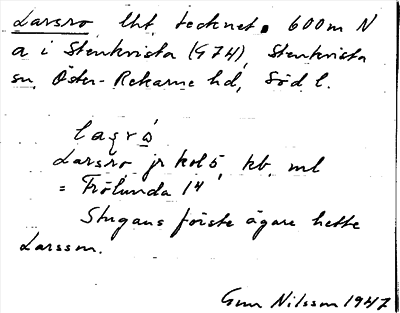 Larsro lht tecknet. 600m N
a i Stenkvista (G74), Stenkvista
sn, Öster-Rekarne hd, Södl.
lagrō
Larsro jr kol 5, kb. ml
= Frölunda 14
Stugans förste ägare hette
Larsson.
Gun Nilsson 1947